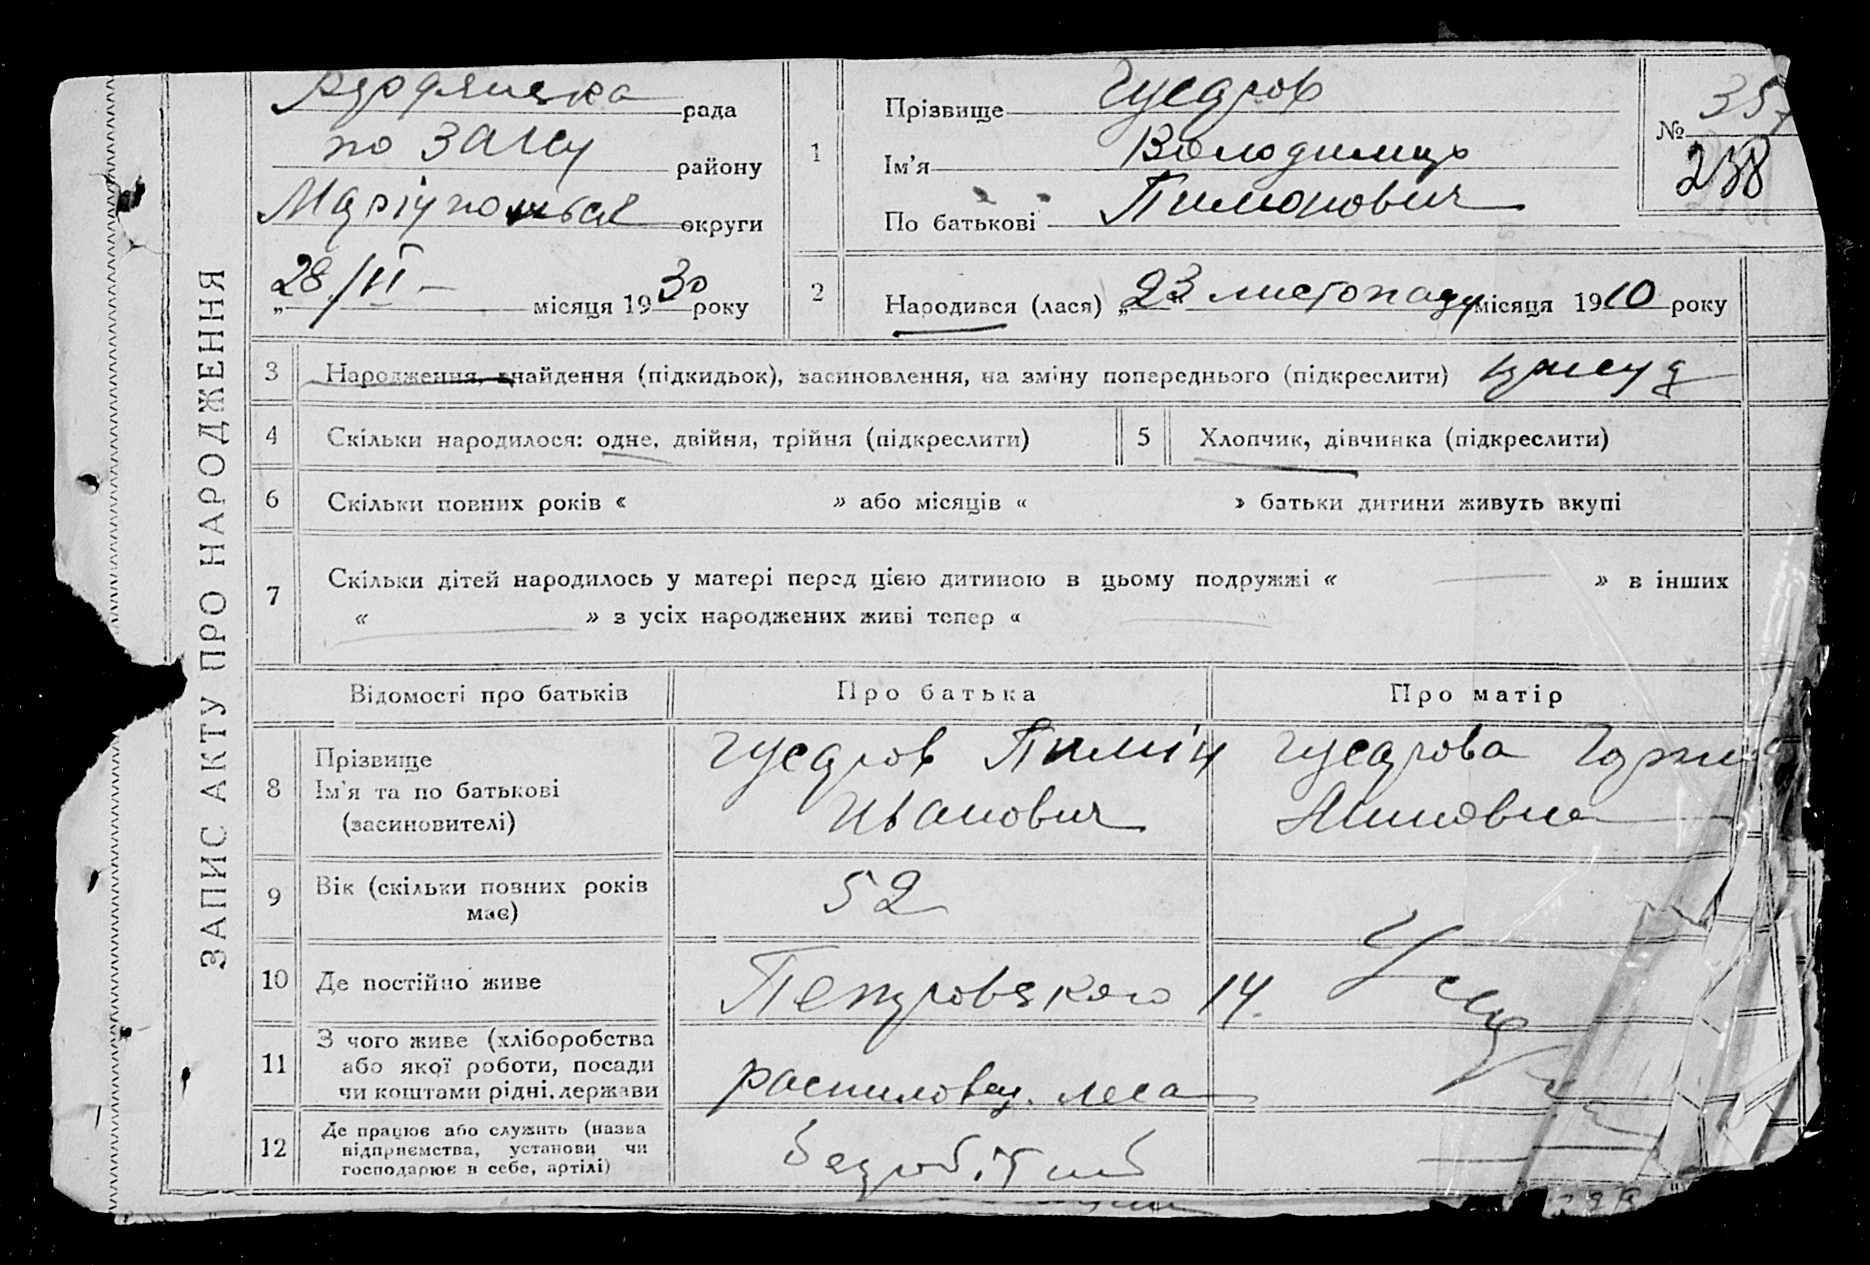 ЗАПИС АКТУ ПРО НАРОДЖЕННЯ
рада
по ЗАГСу району
Маріупольськ округи
„28/II- місяця 1930 року
1
Прізвище Гусаров
Ім'я Володимир
По батькові Пимонович
№ 357
238
2
Народився (лася) „23 листопаду місяця 1910 року
3 Народження, знайдення (підкидьок), засиновлення, на зміну попереднього (підкреслити)
4 Скільки народилося: одне, двійня, трійня (підкреслити)
5 Хлопчик, дівчинка (підкреслити)
6 Скільки повних років « » або місяців « » батьки дитини живуть вкупі
7 Скільки дітей народилось у матері перед цією дитиною в цьому подружжі « — » в інших
« — » з усіх народжених живі тепер « — »
Відомості про батьків Про батька Про матір
8 Прізвище
Ім'я та по батькові
(засиновителі)
Гусаров Пимін
Иванович
Гусарова
9 Вік (скільки повних років
має)
52
10 Де постійно живе
Петровского 14.
11 З чого живе (хліборобства
або якої роботи, посади
чи коштами рідні. держави
распиловщ. леса
12 Де працює або служить (назва
підприємства, установи чи
господарює в себе, артілі)
безробітний